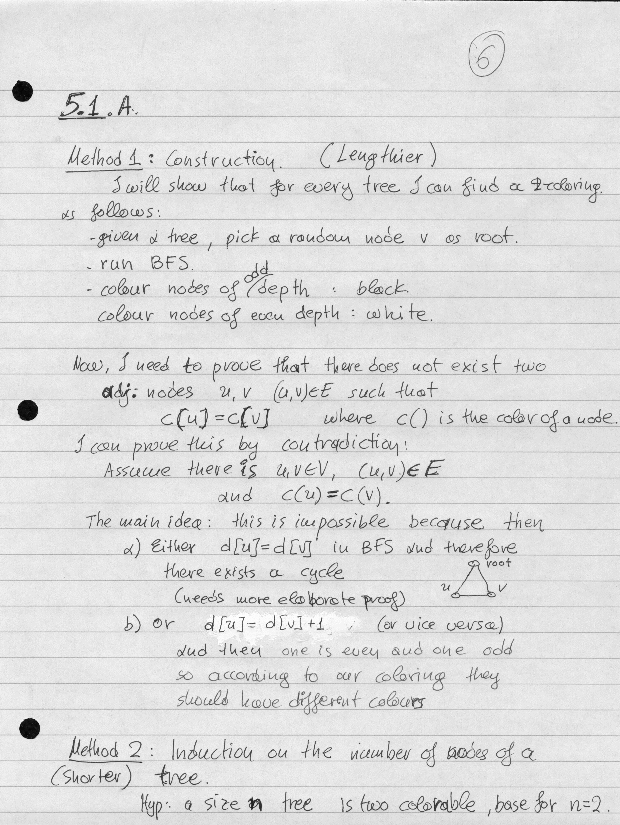 6
5.1.A.
Method 1: Construction. (Lengthier)
I will show that for every tree I can find a 2-coloring.
as follows:
- given a tree, pick a random node v as root.
- run BFS.
- colour nodes of odd depth : black
colour nodes of even depth : white.
Now, I need to prove that there does not exist two
adj. nodes u, v (u,v)∈E such that
c[u]=c[v] where c() is the color of a node.
I can prove this by contradiction:
Assume there is u,v∈V, (u,v)∈E
and c(u)=c(v).
The main idea: this is impossible because then
a) Either d[u]=d[v] in BFS and therefore
there exists a cycle
root
u v
(needs more elaborate proof)
b) or d[u]= d[v]+1 (or vice versa)
and then one is even and one odd
so according to our coloring they
should have different colours
Method 2: Induction on the number of nodes of a
(shorter) tree.
Hyp: a size n tree is two colorable, base for n=2.